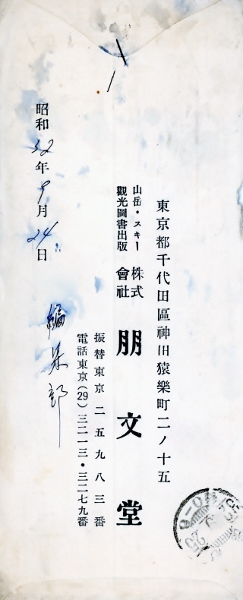 東京都千代田區神田猿樂町二ノ十五
山岳・スキー
觀光圖書出版
株式
會社
朋文堂
振替東京二五九八三番
電話東京(29)三二一三・三二七九番
編集部
昭和32年9月24日